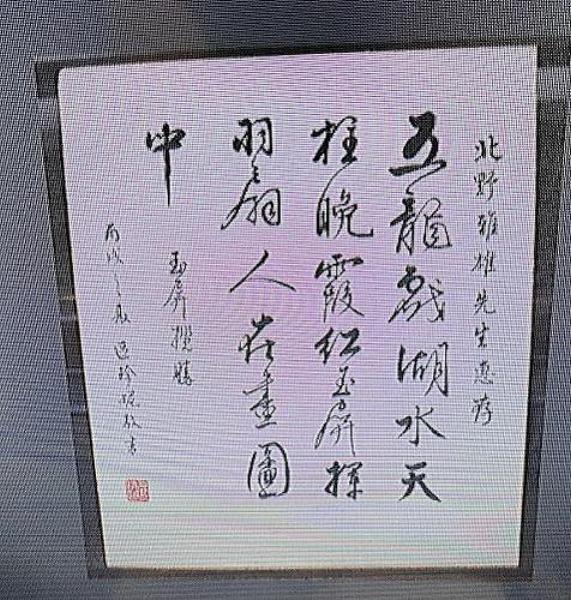 北野雅雄先生惠存
五龍戲湖水天
柱晚霞紅玉屏揮
羽扇人在畫圖
中
玉屏攬勝
丙戌之秋 珍敬書